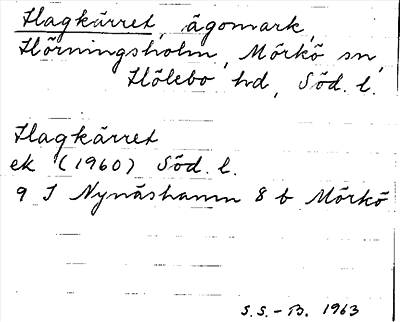 Hagkärret, ägomark,
Hörningsholm, Mörkö sn,
Hölebo hd, Söd. l.
Hagkärret
ek (1960) Söd. l.
9 I Nynäshamn 8 b Mörkö
S.S.-B. 1963